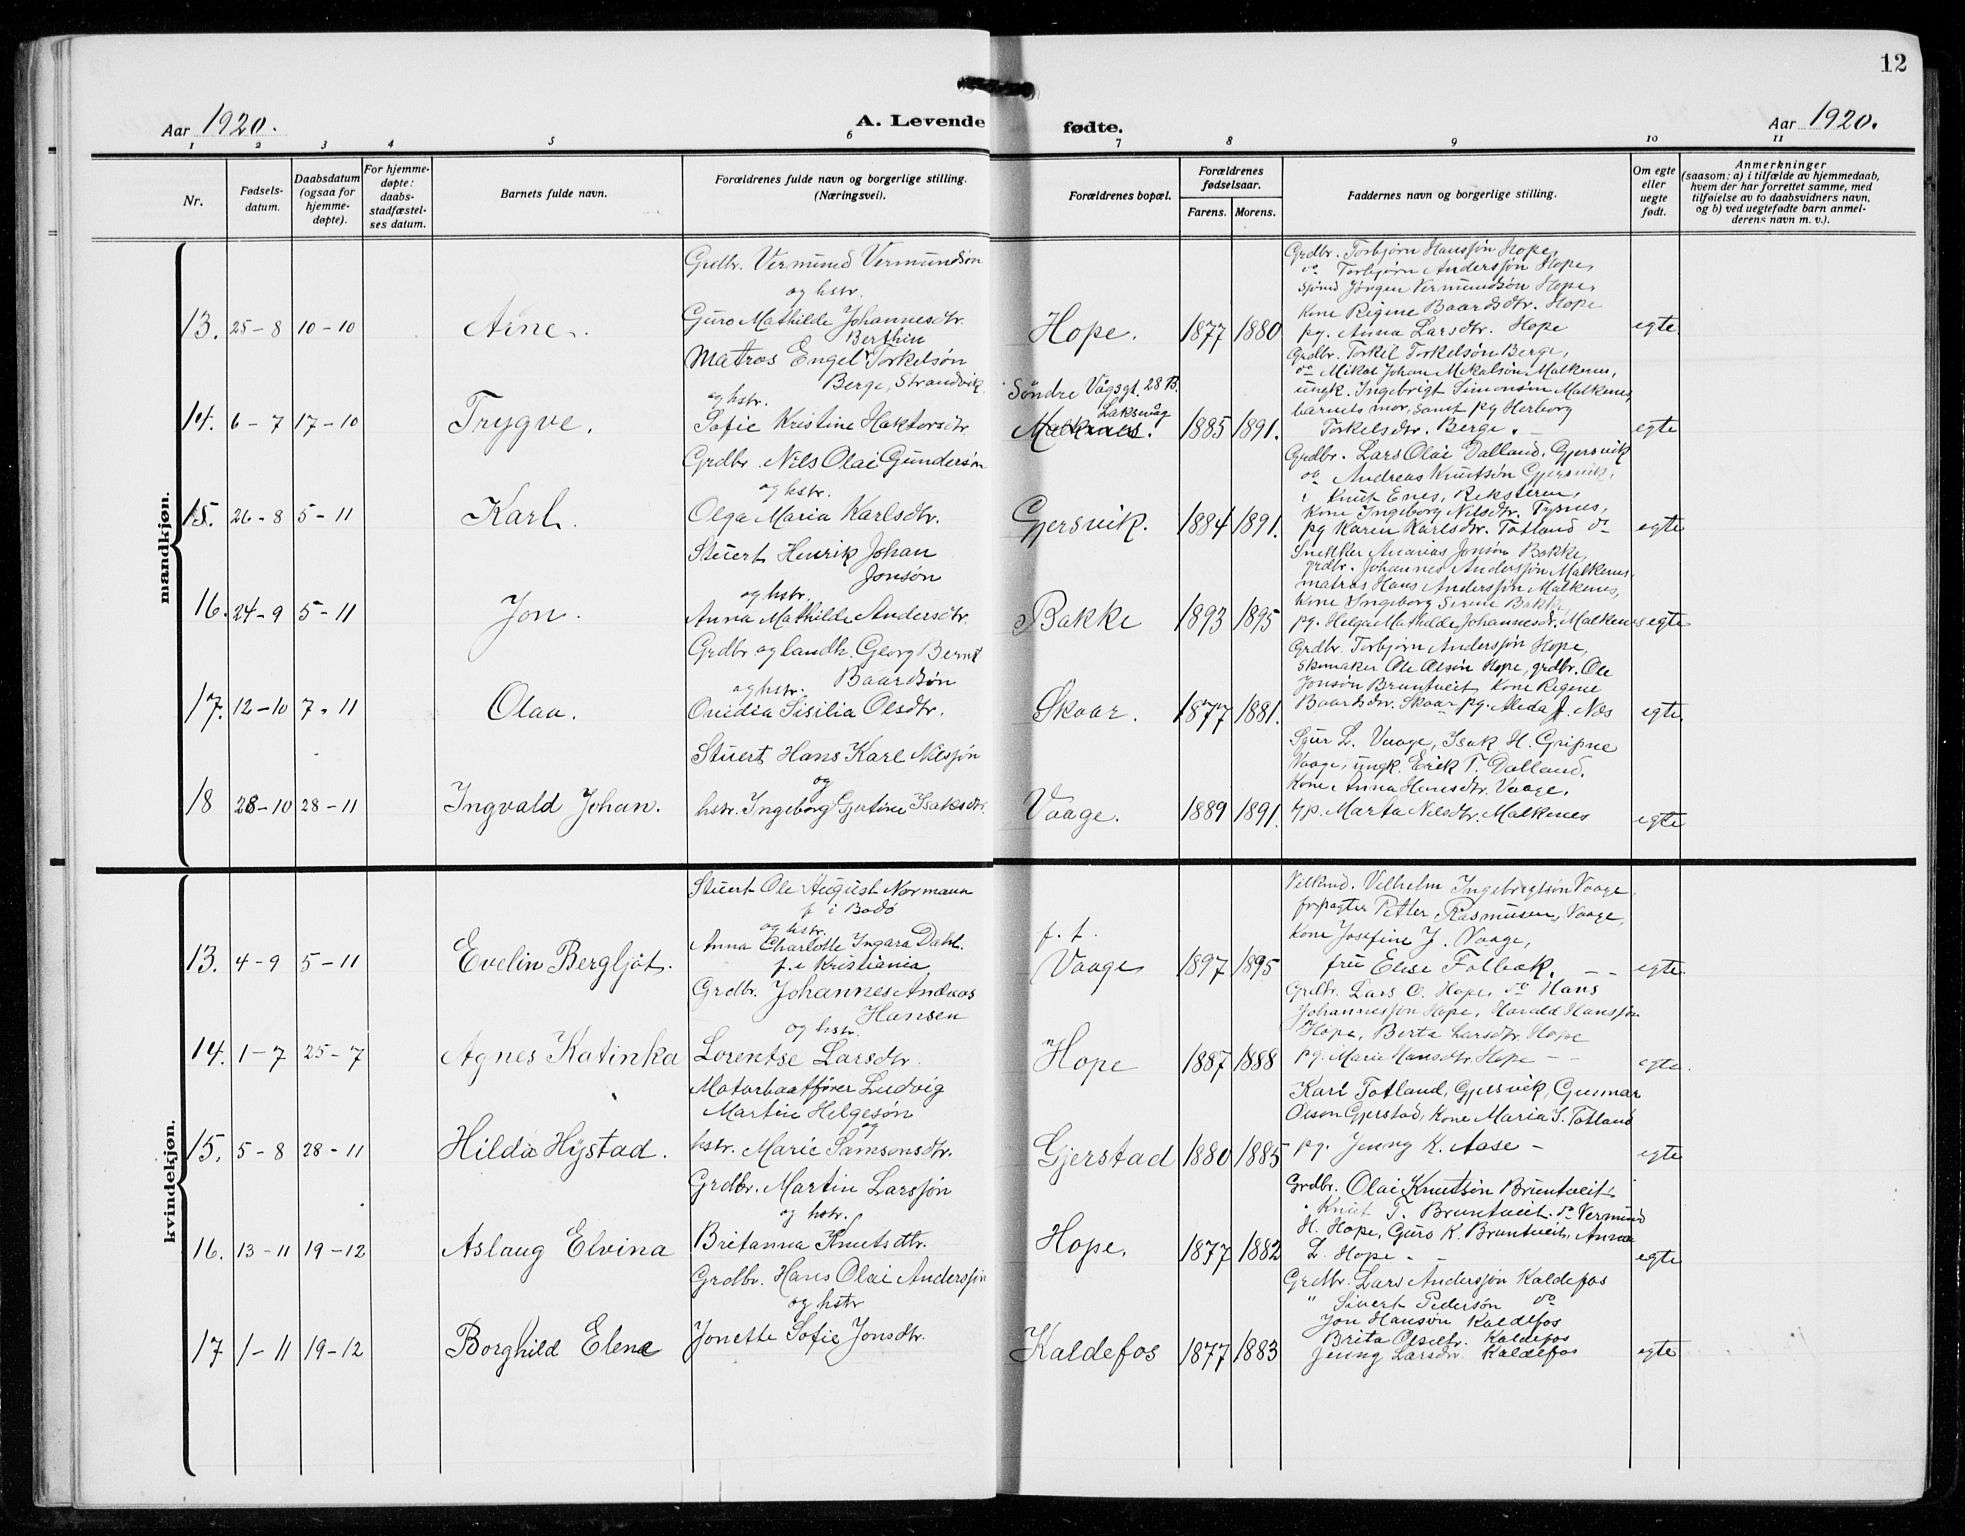 12
Aar 1920.
A. Levende fødte.
Aar 1920.
1 2 3 4 5 6 7 8 9 10 11
Nr.
Fødsels-
datum.
Daabsdatum
(ogsaa for
hjemme-
døpte).
For hjemme-
døpte:
daabs-
stadfæstel-
ses datum.
Barnets fulde navn.
Forældrenes fulde navn og borgerlige stilling.
(Næringsvei).
Forældrenes bopæl.
Forældrenes
fødselsaar.
Farens. Morens.
Faddernes navn og borgerlige stilling.
Om egte
eller
uegte
født.
Anmerkninger
(saasom: a) i tilfælde av hjemmedaab,
hvem der har forrettet samme, med
tilføielse av to daabsvidners navn,
og b) ved uegtefødte barn anmel-
derens navn m. v.).
mandkjøn.
13. 25-8 10-10 Arne.
Grdbr. Vermund Vermundsøn
og hstr.
Guro Mathilde Johannesdtr.
Hope. 1877 1880
Grdbr. Torbjørn Hansson Hope,
do Torbjørn Andersson Hope,
Jørgen Vermundsøn Hope,
Kone Regine Baardsdtr. Hope
pg. Anna Larsdtr. Hope
egte
14. 6-7 17-10 Trygve.
Berthin
Matros Engel Torkelsøn
Berge, Strandvik
og hstr.
Sofie Kristine Haktorsdtr
Søndre Vågsgt. 28 B.
Laksevåg
Malkenes. 1885 1891.
Grdbr. Torkel Torkelsøn Berge,
do Mikal Johan Mikalsøn Malkenes,
ungk. Ingebrigt Simonsøn Malkenes,
barnets mor, samt pg Herborg
Torkelsdtr. Berge.
egte
15. 26-8 5-11 Karl.
Grdbr. Nils Olai Gundersøn
og hstr.
Olga Maria Karlsdtr.
Gjersvik. 1884 1891.
Grdbr. Lars Olai Dalland, Gjersvik
do Andreas Knutsøn Gjersvik,
Knut Enes, Reksteren,
Kone Ingeborg Nilsdtr. Tysnes,
pg Karen Karlsdtr. Totland do
egte
16. 24-9 5-11 Jon.
Stuert Henrik Johan
Jonsøn
og hstr.
Anna Mathilde Andersdtr.
Bakke 1893 1895
Snekker Ananias Jonsøn Bakke,
grdbr. Johannes Andersson Malkenes,
matros Hans Andersson Malkenes,
Kone Ingeborg Serine Bakke,
pg. Helga Mathilde Johannesdr. Malkenes
egte
17. 12-10 7-11 Olav.
Grdbr og landh. Georg Bernt
Baardsøn
og hstr.
Ovidia Sisilia Olsdtr.
Skaar. 1877 1881.
Grdbr. Torbjørn Andersson Hope,
skomaker Ole Olsøn Hope, grdbr. Ole
Jonsøn Bruntveit, Kone Regine
Baardsdtr. Skaar pg. Alida J. Næs
egte.
18 28-10 28-11 Ingvald Johan.
Stuert Hans Karl Nilsson
og
hstr. Ingeborg Gjertine Isaksdtr.
Vaage. 1889 1891.
Sjur L. Vaage, Isak H. Gripne
Vaage, ungk. Erik T. Dalland.
Kone Anna Hansdtr. Vaage,
gp. Marta Nilsdtr. Malkenes
egte
kvindekjøn.
13. 4-9 5-11 Evelin Bergljot.
Stuert Ole August Normann
f i Bodø
og hstr.
Anna Charlotte Ingara Dahl.
f. i Kristiania
f. t.
Vaage 1897 1895
Vilhelm Ingebrigtsøn Vaage
forpagter Petter Rasmussen, Vaage,
Kone Josefine J. Vaage,
fru Elise Folbak. - -
egte.
14. 1-7 25-7 Agnes Katinka
Grdbr. Johannes Andreas
Hansen
og hstr.
Lorentse Larsdtr.
Hope 1887 1888
Grdbr. Lars O. Hope, do Hans
Johannesson Hope, Harald Hansson
Hope, Berta Larsdtr Hope
pg. Marie Hansdtr. Hope - -
egte.
15. 5-8 28-11 Hilda Hystad.
Motorbaatfører Ludvig
Martin Helgesøn
og
hstr. Marie Samsonsdtr.
Gjerstad 1880 1885
Karl Totland, Gjersvik, Gunnar
Olson Gjerstad, Kone Maria S. Totland
pg. Jenny K. Aase -
egte
16. 13-11 19-12 Aslaug Elvina
Grdbr. Martin Larsson
og hstr.
Britanna Knutsdtr.
Hope. 1877 1882
Grdbr. Olai Knutsøn Bruntveit,
Knut T. Bruntveit. do Vermund
H. Hope, Guro K. Bruntveit, Anna
L. Hope -
egte
17 1-11 19-12 Borghild Elene
Grdbr. Hans Olai Andersson
og hstr
Jonette Sofie Jonsdtr.
Kaldefos 1877 1883
Grdbr. Lars Andersson Kaldefos
" Sivert Pedersøn do
Jon Hansøn Kaldefos
Brita Olsdtr. Kaldefos
Jenny Larsdtr. Kaldefos
egte